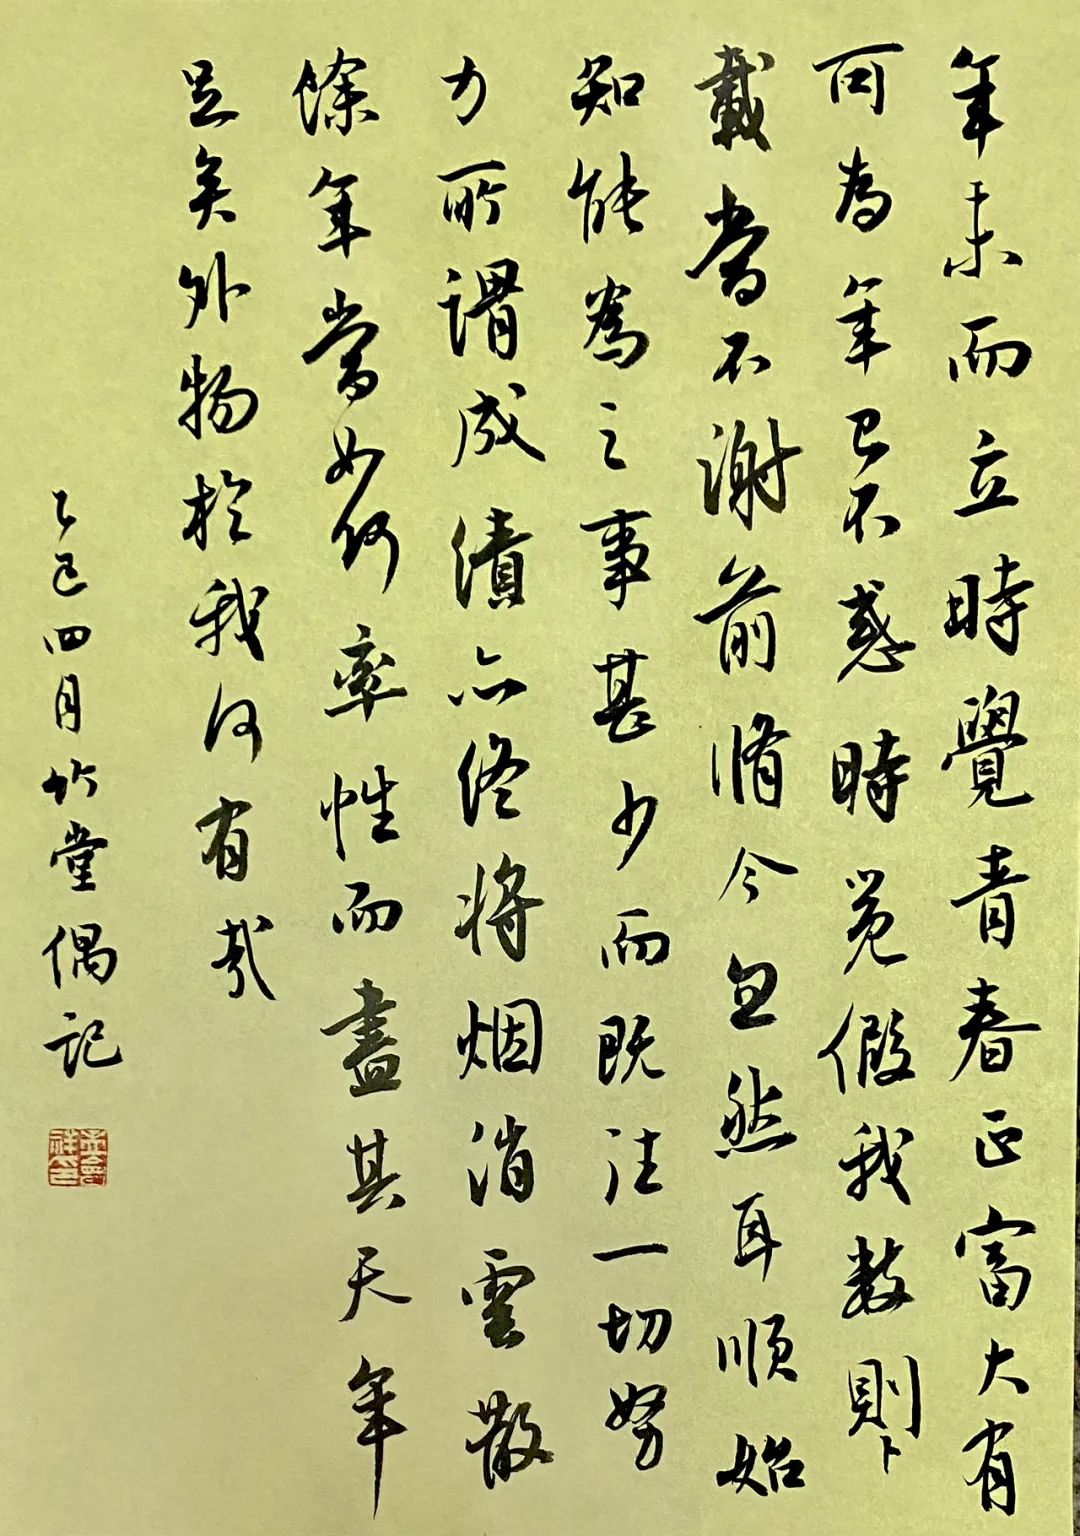 年未而立時覺青春正富大有
可為年已不惑時覚假我數年則
載當不謝前脩今忽然耳順始
知能為之事甚少而既往一切努
力所謂成績亦終將烟消雲散
餘年當如何率性而盡其天年
足矣外物於我何有哉
乙巳四月竹堂偶記